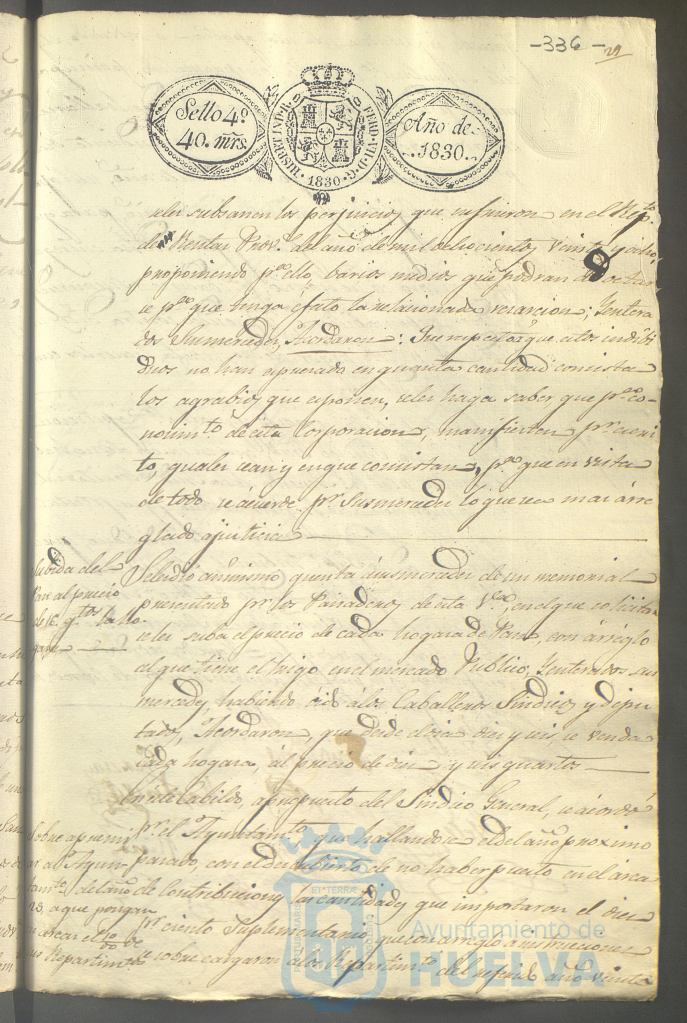 -336-
29
Sello 4º
40. mrs.
HISPANIAR. R.
FERD. VII. D. G.
1830
Año de
1830.
seles subsanen los perjuicios que sufrieron en el Repto
de Rentas Provs del año de mil ochocientos veinte y ocho,
proponiendo pa ello varios medios que podran
se pa que tenga efecto la relacionada ; Yentera
dos Sumercedes, Acordaron: Que respecto a que estos indibi
duos no han expresado en quanta cantidad consista
los agrabios que exponen, seles haga saber que pa co-
nocimto de esta Corporacion, manifiesten pr escri
to, quales sean y en que consistan, pa que en vista
de todo se acuerde pr Susmercedes lo que sea mas arre
glado a justicia
Subida del
Pan al precio
de 16 qtos la ho
gaza
Se dió asimismo quenta a susmercedes de un memorial
presentado pr los Panaderos de esta Va, en el que solicitan
seles suba el precio de cada hogaza de Pan, con arreglo
al que tiene el trigo en el mercado Publico, Yenterados sus
mercedes, habiendo oido a los Caballeros Sindicos y dipu
tados, Acordaron, que desde el dia diez y seis, se venda
cada hogaza, al precio de diez y seis quartos
En este Cabildo, a propuesta del Sindico General, se acordó
Sobre apremi
ar al Ayun
tamto del año
a que pongan
en arcas el
Repartimtos
pr el Ayuntamto que hallandose el del año proximo
pasado, con el descubierto de no haber puesto en el arca
de Contribuciones las cantidades que importaron el diez
pr ciento Suplementario que con arreglo a instrucciones
se sobre cargaron a los Repartimtos del referido año veinte
Ayuntamiento de
HUELVA